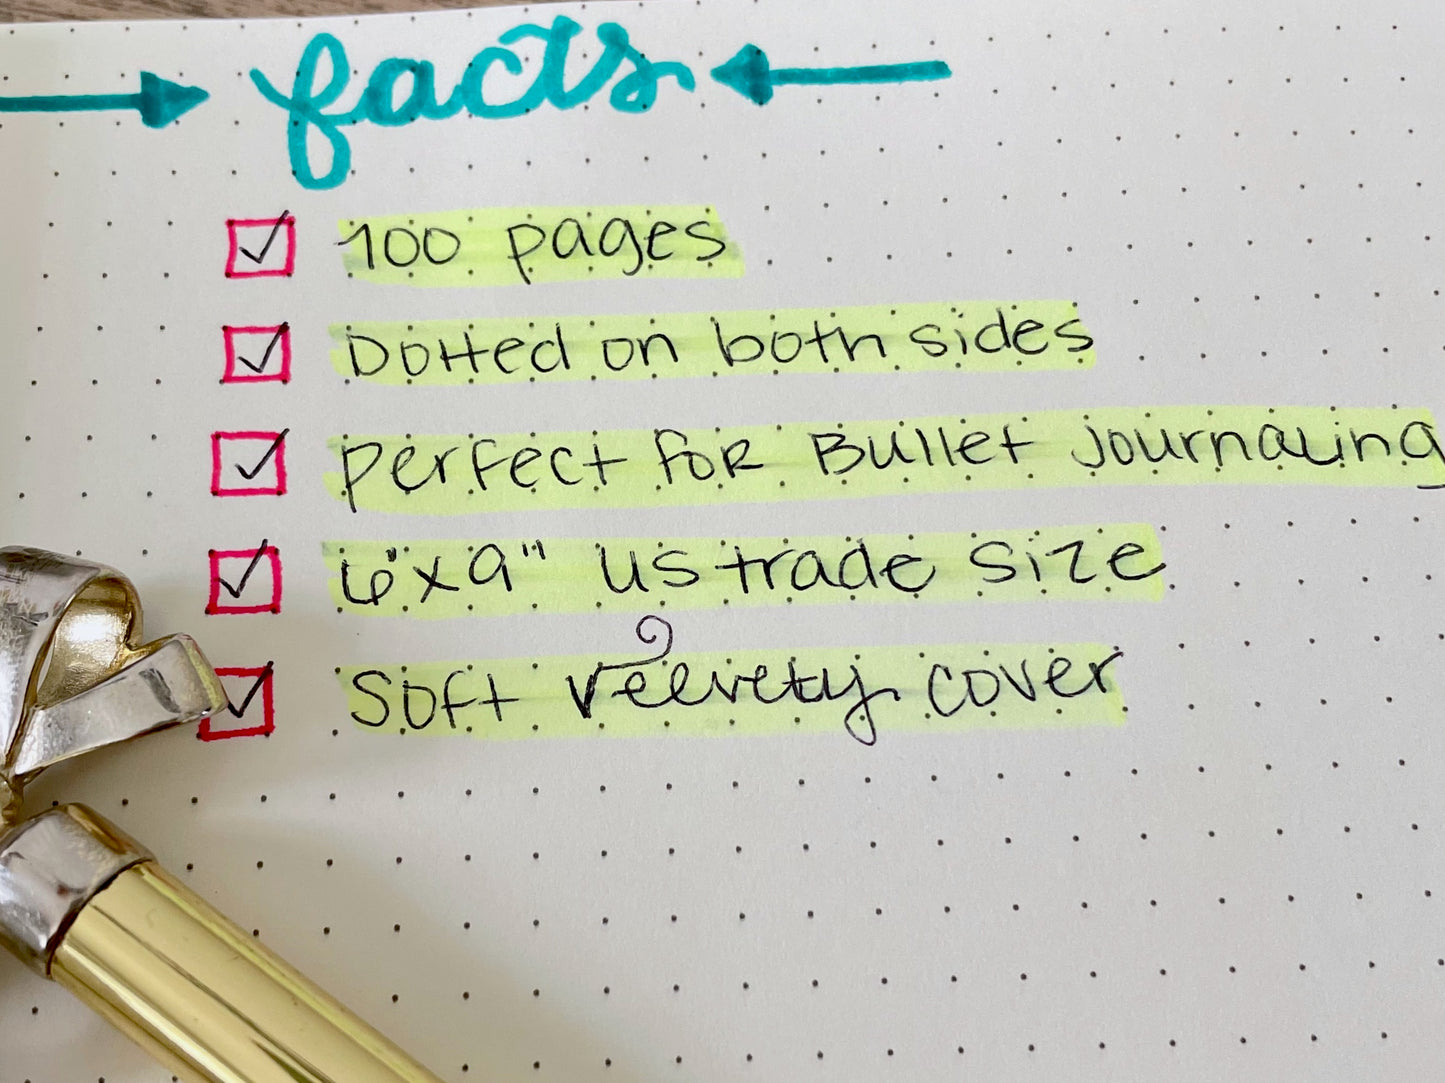 facts
100 pages
Dotted on both sides
perfect for Bullet journaling
6"x9" US trade size
Soft velvety cover